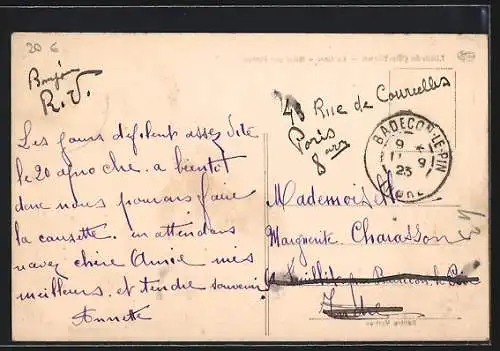 20 6
Bonjour
R.V.
Les jours defilent assez vite
le 20 aproche. a bientot
donc nous pouvons faire
la causette. en attendans
chère Amie mes
meilleurs. et tendre souvenirs
Annette
43 Rue de Courcelles
Paris
8 arr
BADECON-LE-PIN
9
11 9
23
INDRE
Mademoiselle
Marguerite Charasson
Badecon le Pin
Indre